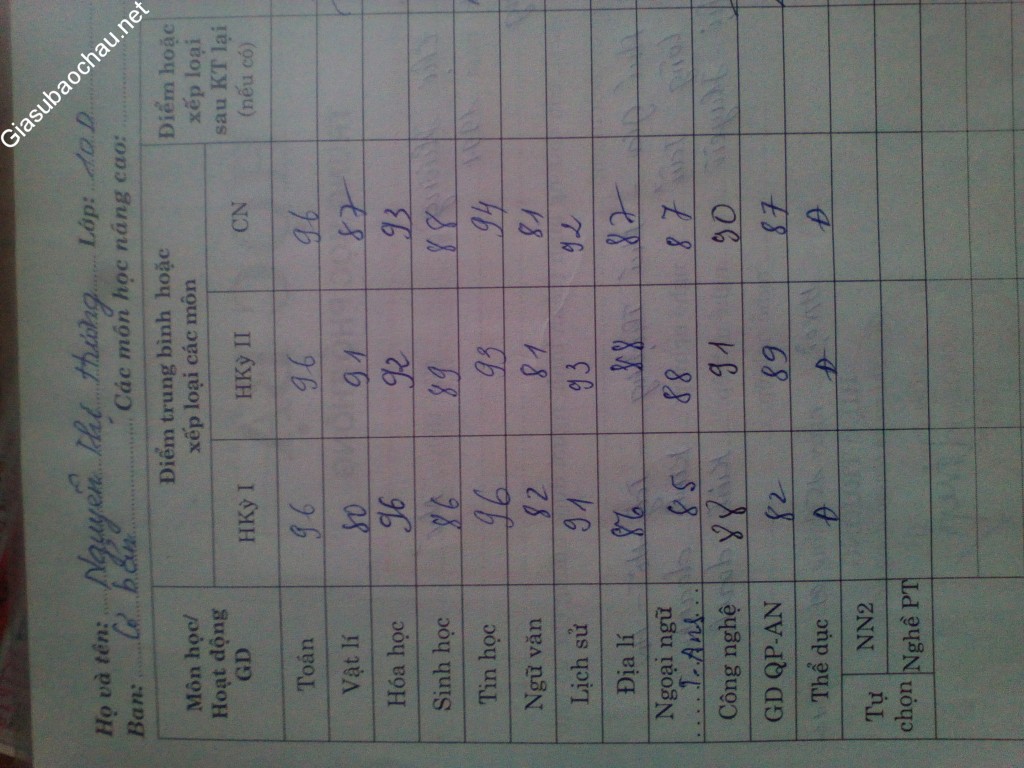 Giasubaochau.net
Họ và tên: Nguyễn Thế Hường Lớp: 10D
Ban: Cơ bản Các môn học nâng cao:
Môn học/ Hoạt động GD
Điểm trung bình hoặc xếp loại các môn
Điểm hoặc xếp loại sau KT lại (nếu có)
HKỳ I HKỳ II CN
Toán 96 96 96
Vật lí 80 91 87
Hóa học 96 92 93
Sinh học 86 89 88
Tin học 96 93 94
Ngữ văn 82 81 81
Lịch sử 91 93 92
Địa lí 86 88 87
Ngoại ngữ
T.Anh 85 88 87
Công nghệ 88 91 90
GD QP-AN 82 89 87
Thể dục Đ Đ Đ
Tự chọn
NN2
Nghề PT